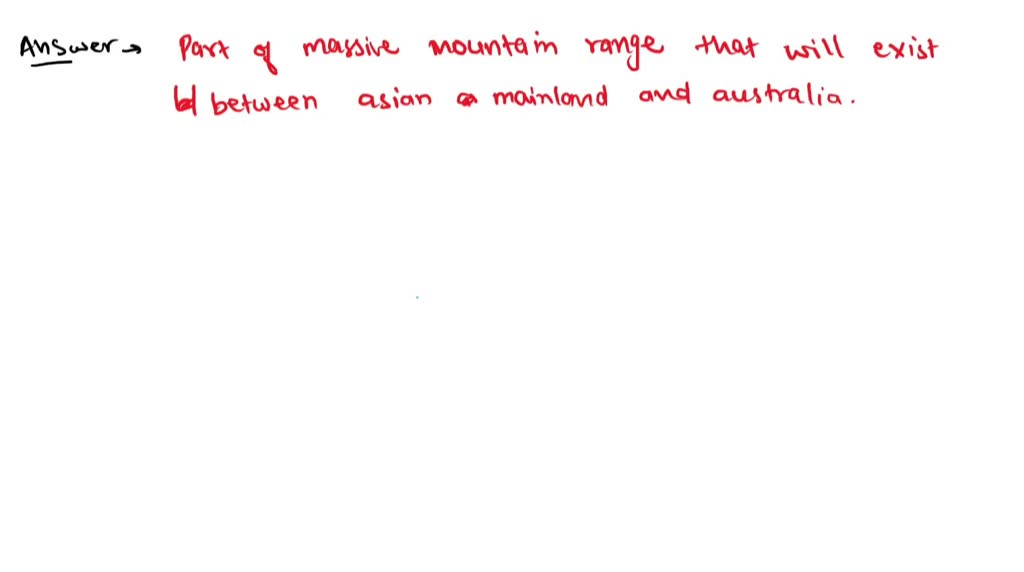 Answer → Part of massive mountain range that will exist
between asian mainland and australia.